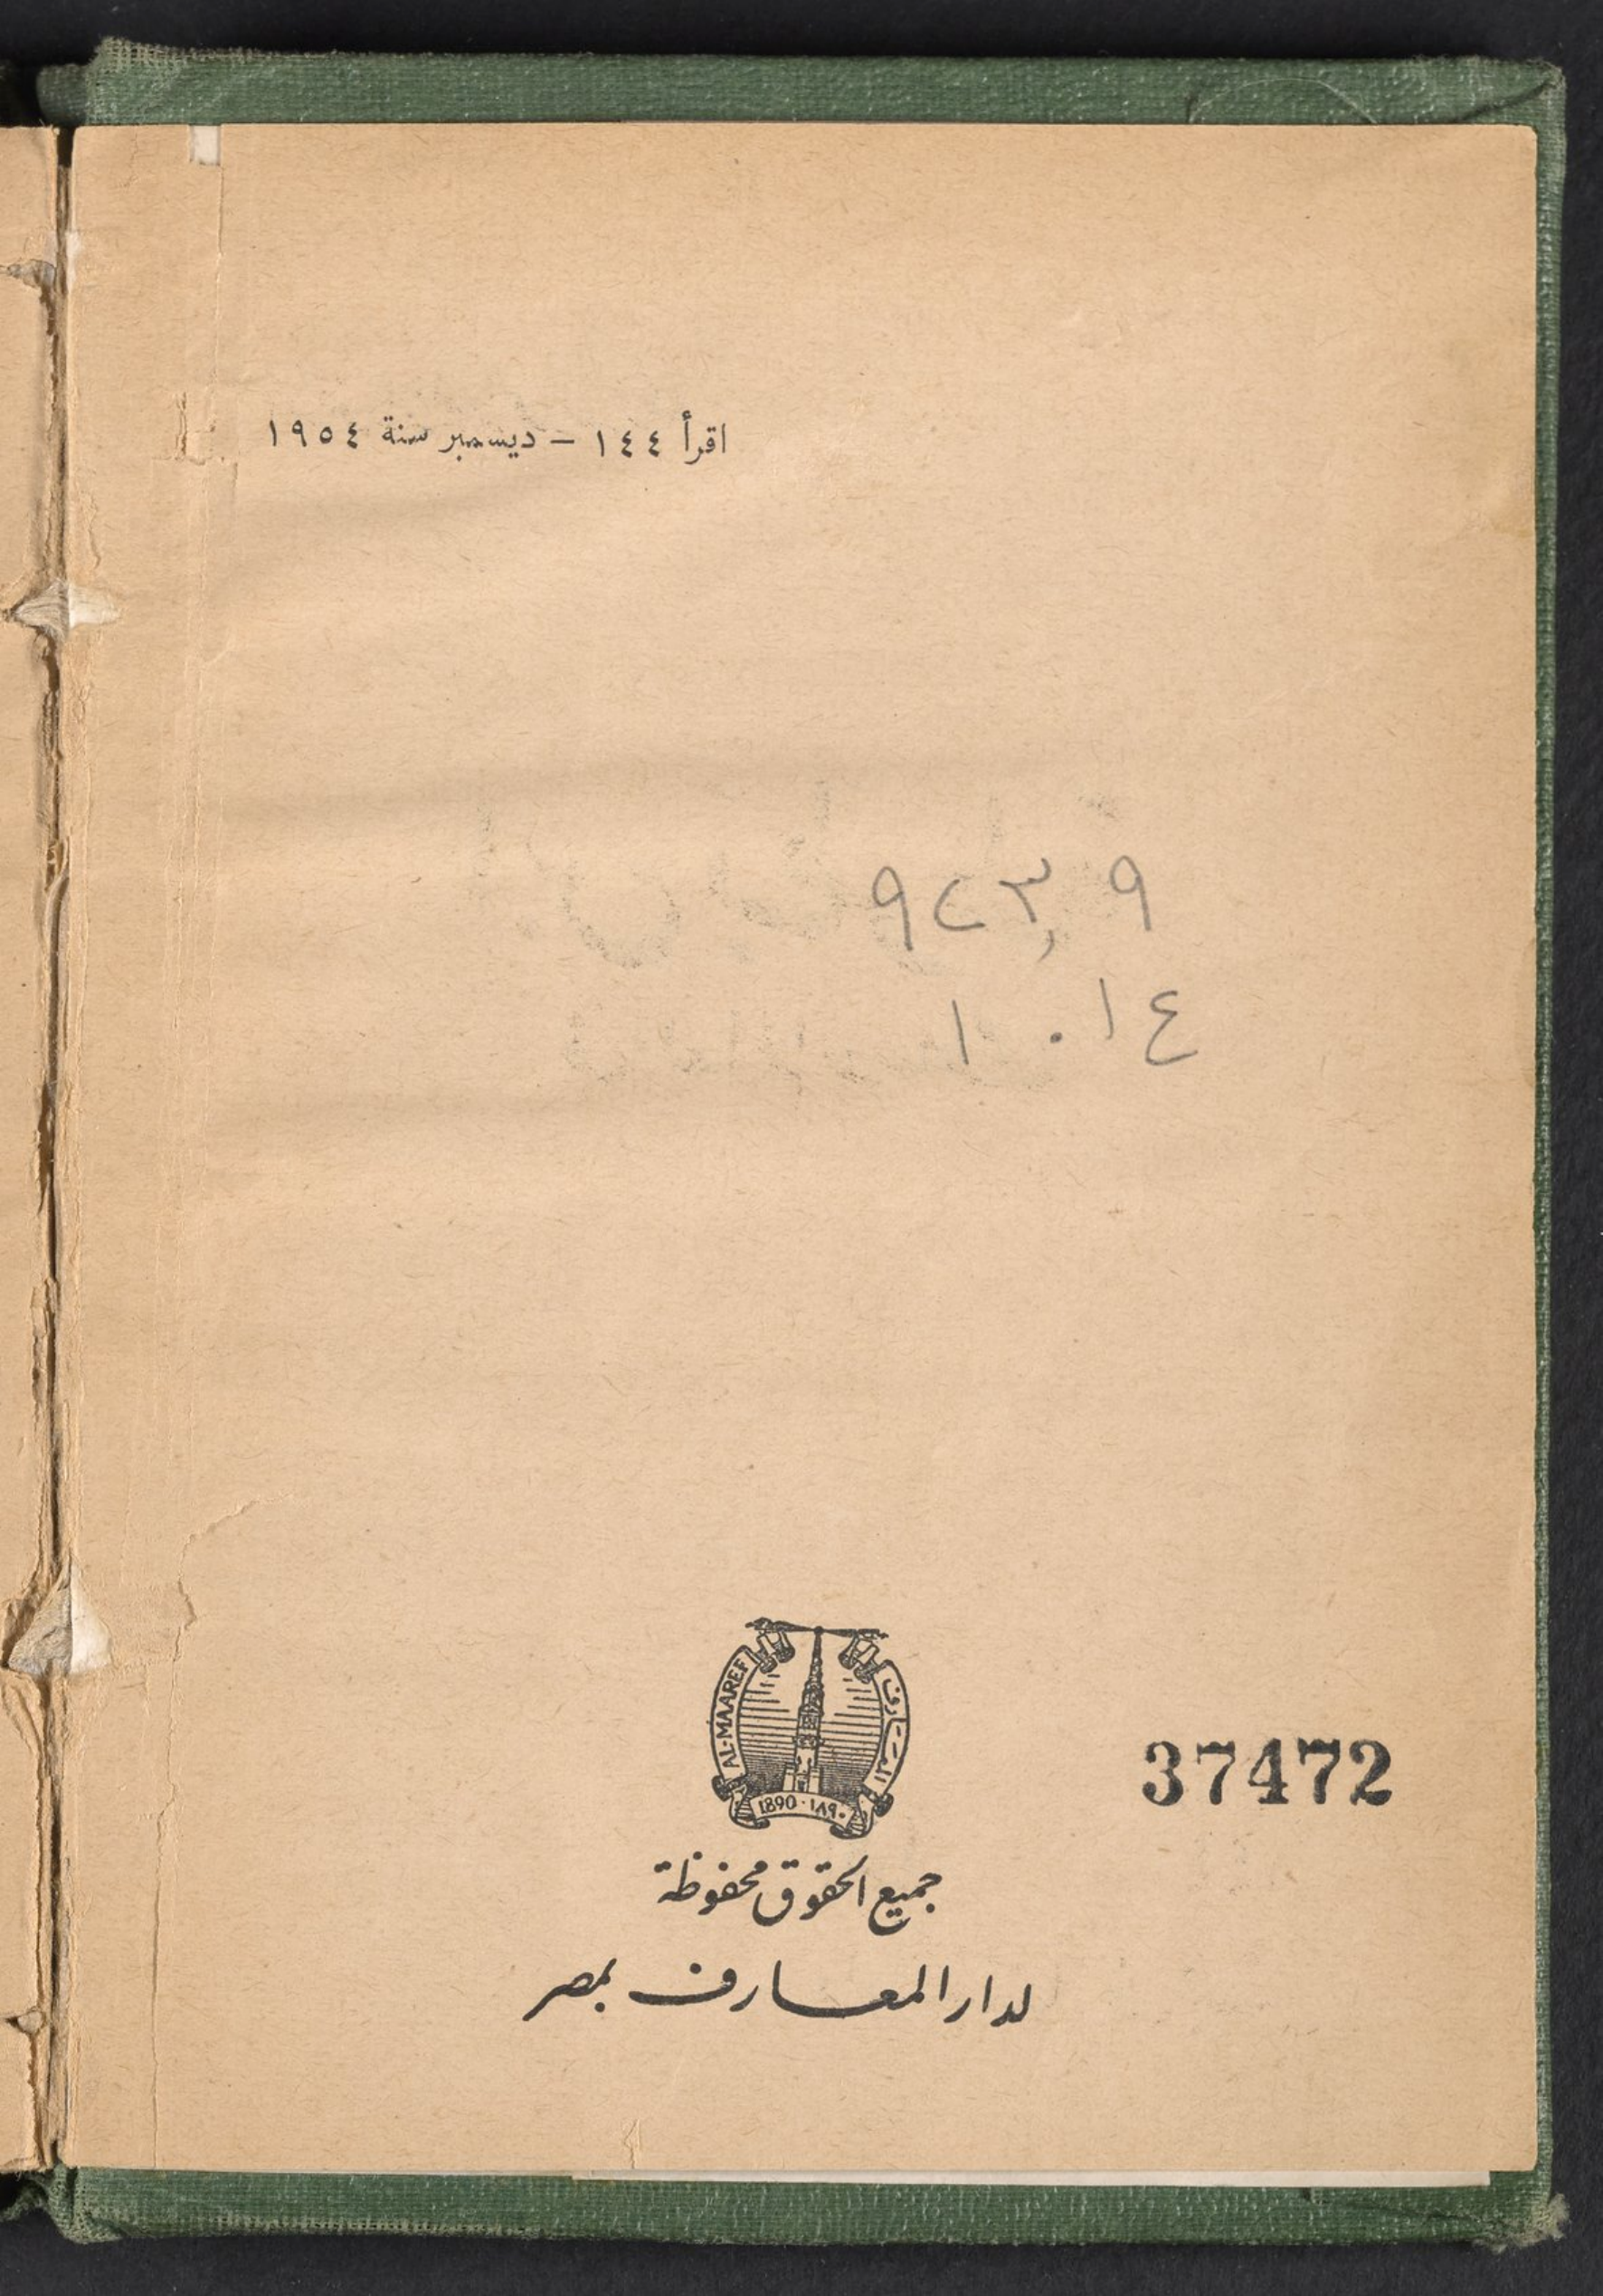 اقرأ ١٤٤ – ديسمبر سنة ١٩٥٤
٩٢٣,٩
١ ٠١٤
AL-MAAREF
المعارف
1890 · ١٨٩٠
37472
جميع الحقوق محفوظة
لدار المعارف بمصر